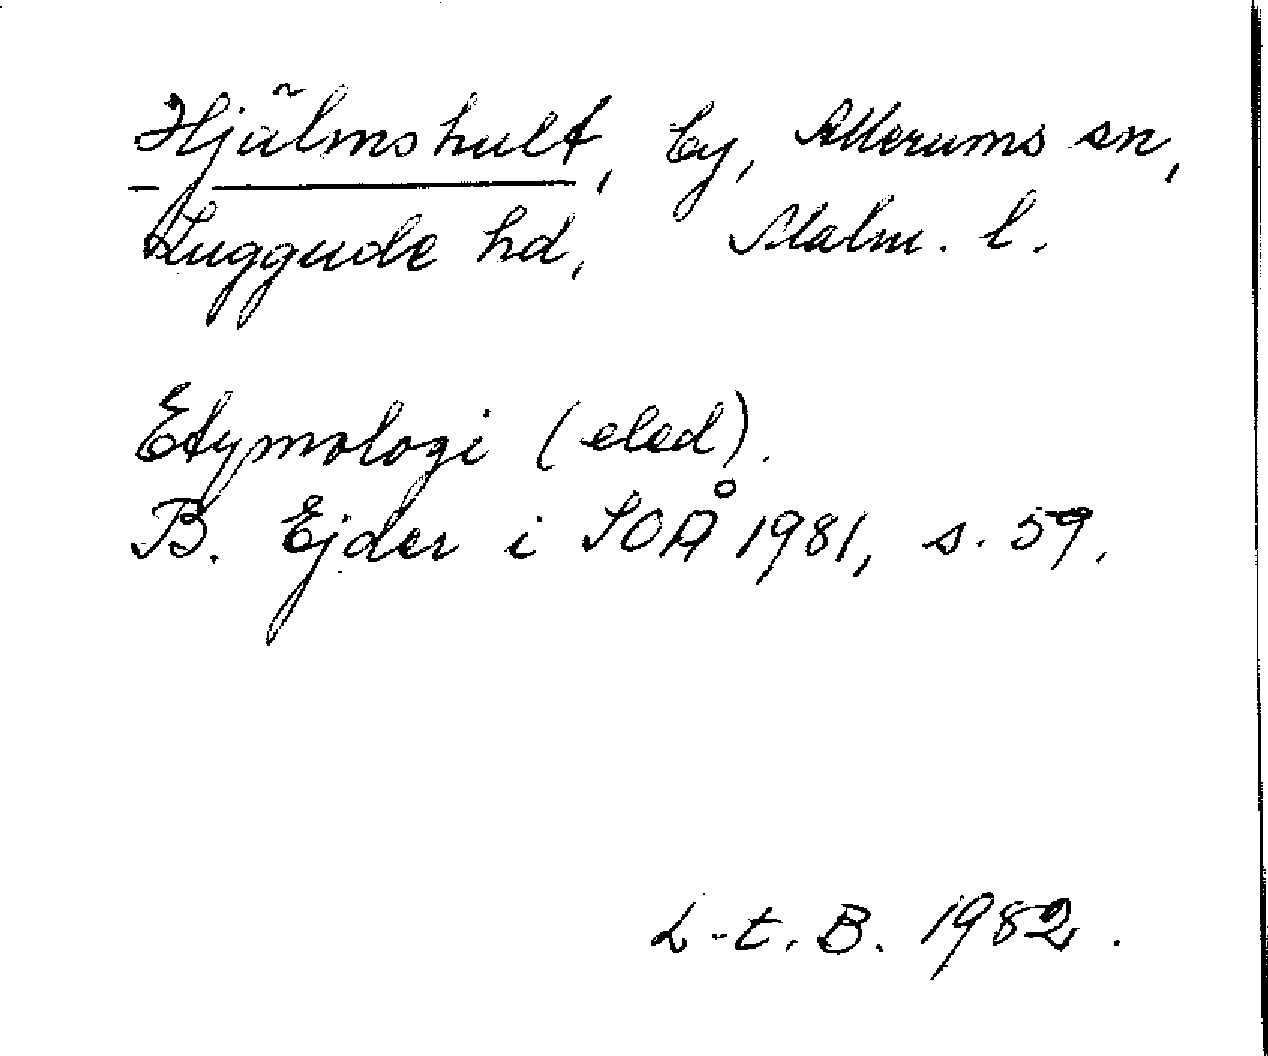 Hjälmshult, by, Allerums sn,
Luggude hd, Malm. l.
Etymologi (eled).
B. Ejder i SOÅ 1981, s. 59.
L-t. B. 1982.